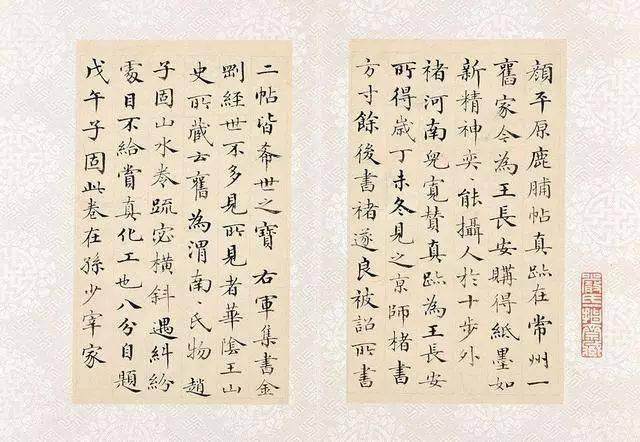 顏平原鹿脯帖真跡在常州一
舊家今為王長安購得紙墨如
新精神奕〻能攝人於十步外
褚河南兒寬贊真跡為王長安
所得歲丁未冬見之京師楮書
方寸餘後書褚遂良被詔所書
二帖皆希世之寶 右軍集書金
剛經世不多見所見者華陰王山
史所藏云舊為渭南〻氏物趙
子固山水卷疏密橫斜遇糾紛
處目不給賞真化工也八分自題
戊午子固此卷在孫少宰家